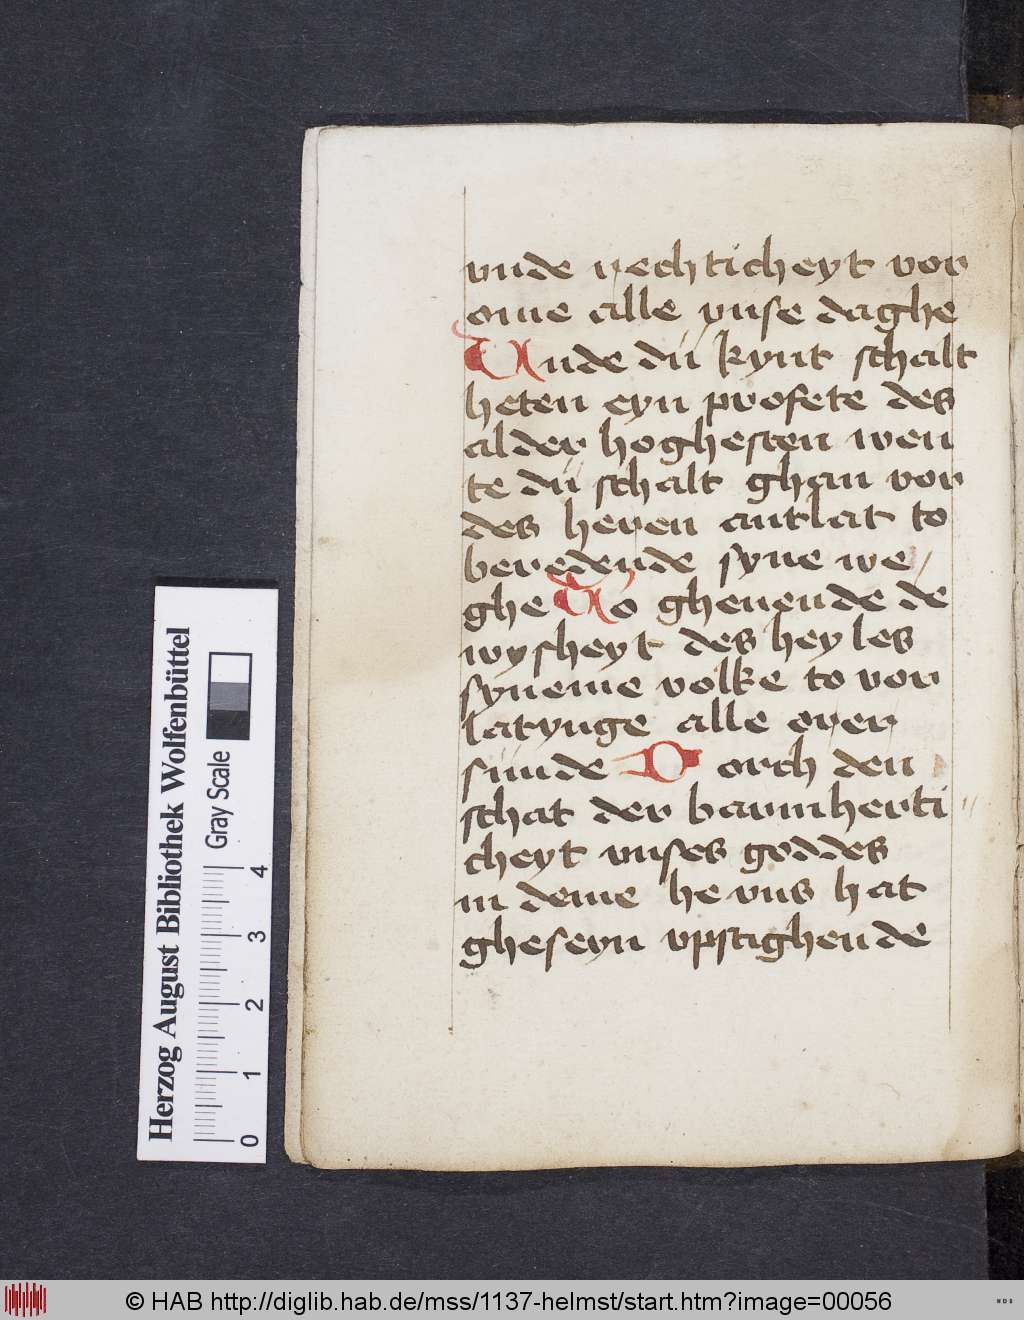 vnde rechticheyt vor
ome alle vnse daghe
Vnde dů kynt schalt
heten eyn profete des
alder hoghesten wen
te dů schalt ghan vor
des heren antlat to
beredende syne we/
ghe To gheuende de
wysheyt des heyles
syneme volke to vor
latynge alle orer
sůnde Dorch den
schat der barmherti//
cheyt vnses goddes
in deme he vns hat
gheseyn vpstighende
Herzog August Bibliothek Wolfenbüttel
Gray Scale
0 1 2 3 4
© HAB http://diglib.hab.de/mss/1137-helmst/start.htm?image=00056